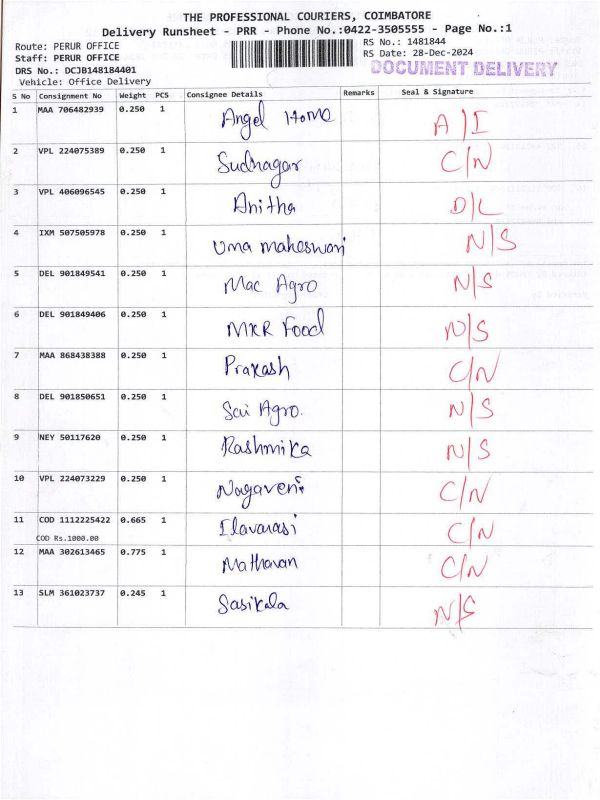 THE PROFESSIONAL COURIERS, COIMBATORE
Delivery Runsheet - PRR - Phone No.:0422-3505555 - Page No.:1
Route: PERUR OFFICE
Staff: PERUR OFFICE
DRS No.: DCJB148184401
Vehicle: Office Delivery
RS No.: 1481844
RS Date: 28-Dec-2024
DOCUMENT DELIVERY
S No Consignment No Weight PCS Consignee Details Remarks Seal & Signature
1 MAA 706482939 0.250 1 Angel Home A/I
2 VPL 224075389 0.250 1 Sudhagar C/N
3 VPL 406096545 0.250 1 Anitha D/L
4 IXM 507505978 0.250 1 Uma maheswari N/S
5 DEL 901849541 0.250 1 Mac Agro N/S
6 DEL 901849406 0.250 1 MKR Food N/S
7 MAA 868438388 0.250 1 Prakash C/N
8 DEL 901850651 0.250 1 Sai Agro. N/S
9 NEY 50117620 0.250 1 Rashmika N/S
10 VPL 224073229 0.250 1 Nagaveni C/N
11 COD 1112225422 0.665 1 Ilavarasi C/N
COD Rs.1000.00
12 MAA 302613465 0.775 1 Mathavan C/N
13 SLM 361023737 0.245 1 Sasikala N/S